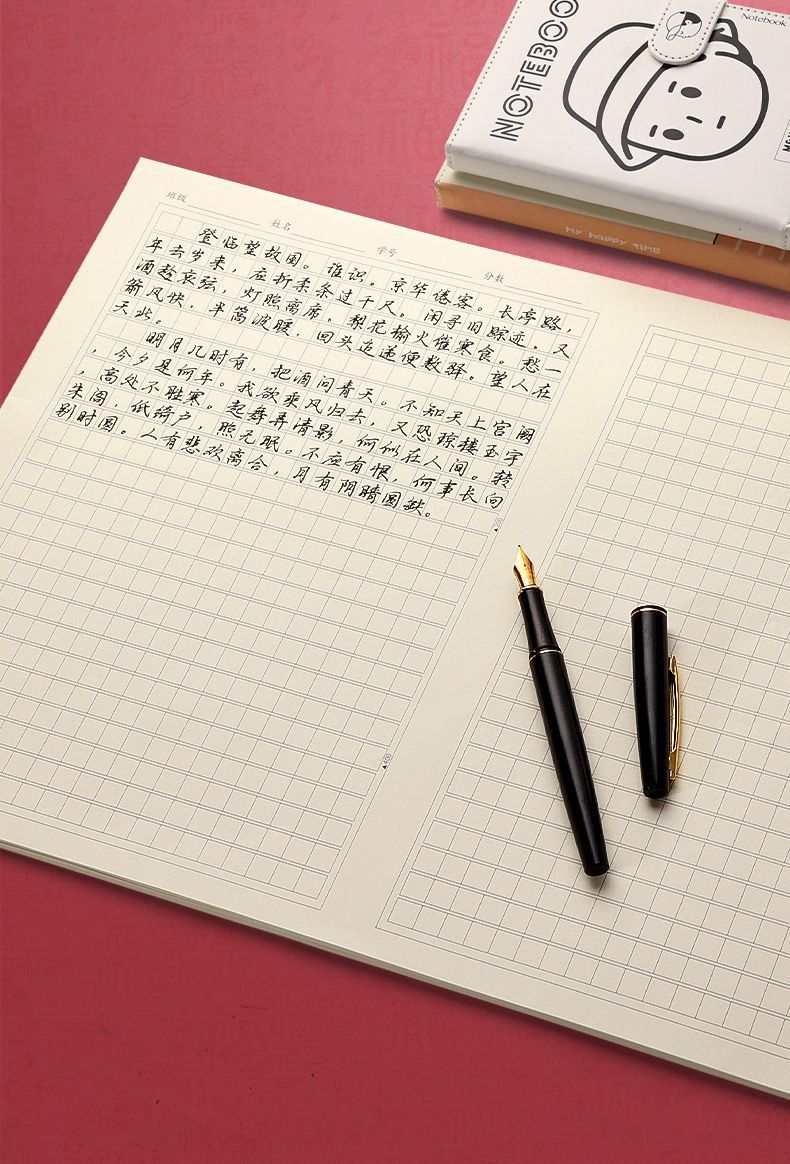 NOTEBOO
Notebook
My happy time
班级 姓名 学号 分数
登临望故国。谁识。京华倦客。长亭路，
年去岁来，应折柔条过千尺。闲寻旧踪迹。又
酒趁哀弦，灯照离席。梨花榆火催寒食。愁一
箭风快，半篙波暖，回头迢递便数驿。望人在
天北。
明月几时有，把酒问青天。不知天上宫阙
，今夕是何年。我欲乘风归去，又恐琼楼玉宇
，高处不胜寒。起舞弄清影，何似在人间。转
朱阁，低绮户，照无眠。不应有恨，何事长向
别时圆。人有悲欢离合，月有阴晴圆缺。